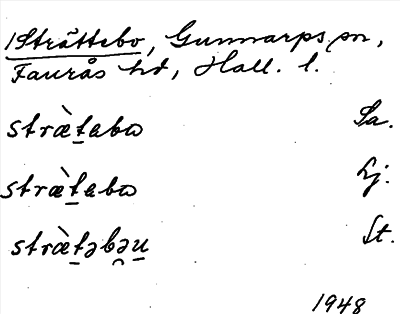 1Stråttebo, Gunnarps sn,
Faurås hd, Hall. l.
stræ̀t̠abω Sa.
stræ̀t̠abω Lj.
stræ̀t̠əbə̯u̠ St.
1948